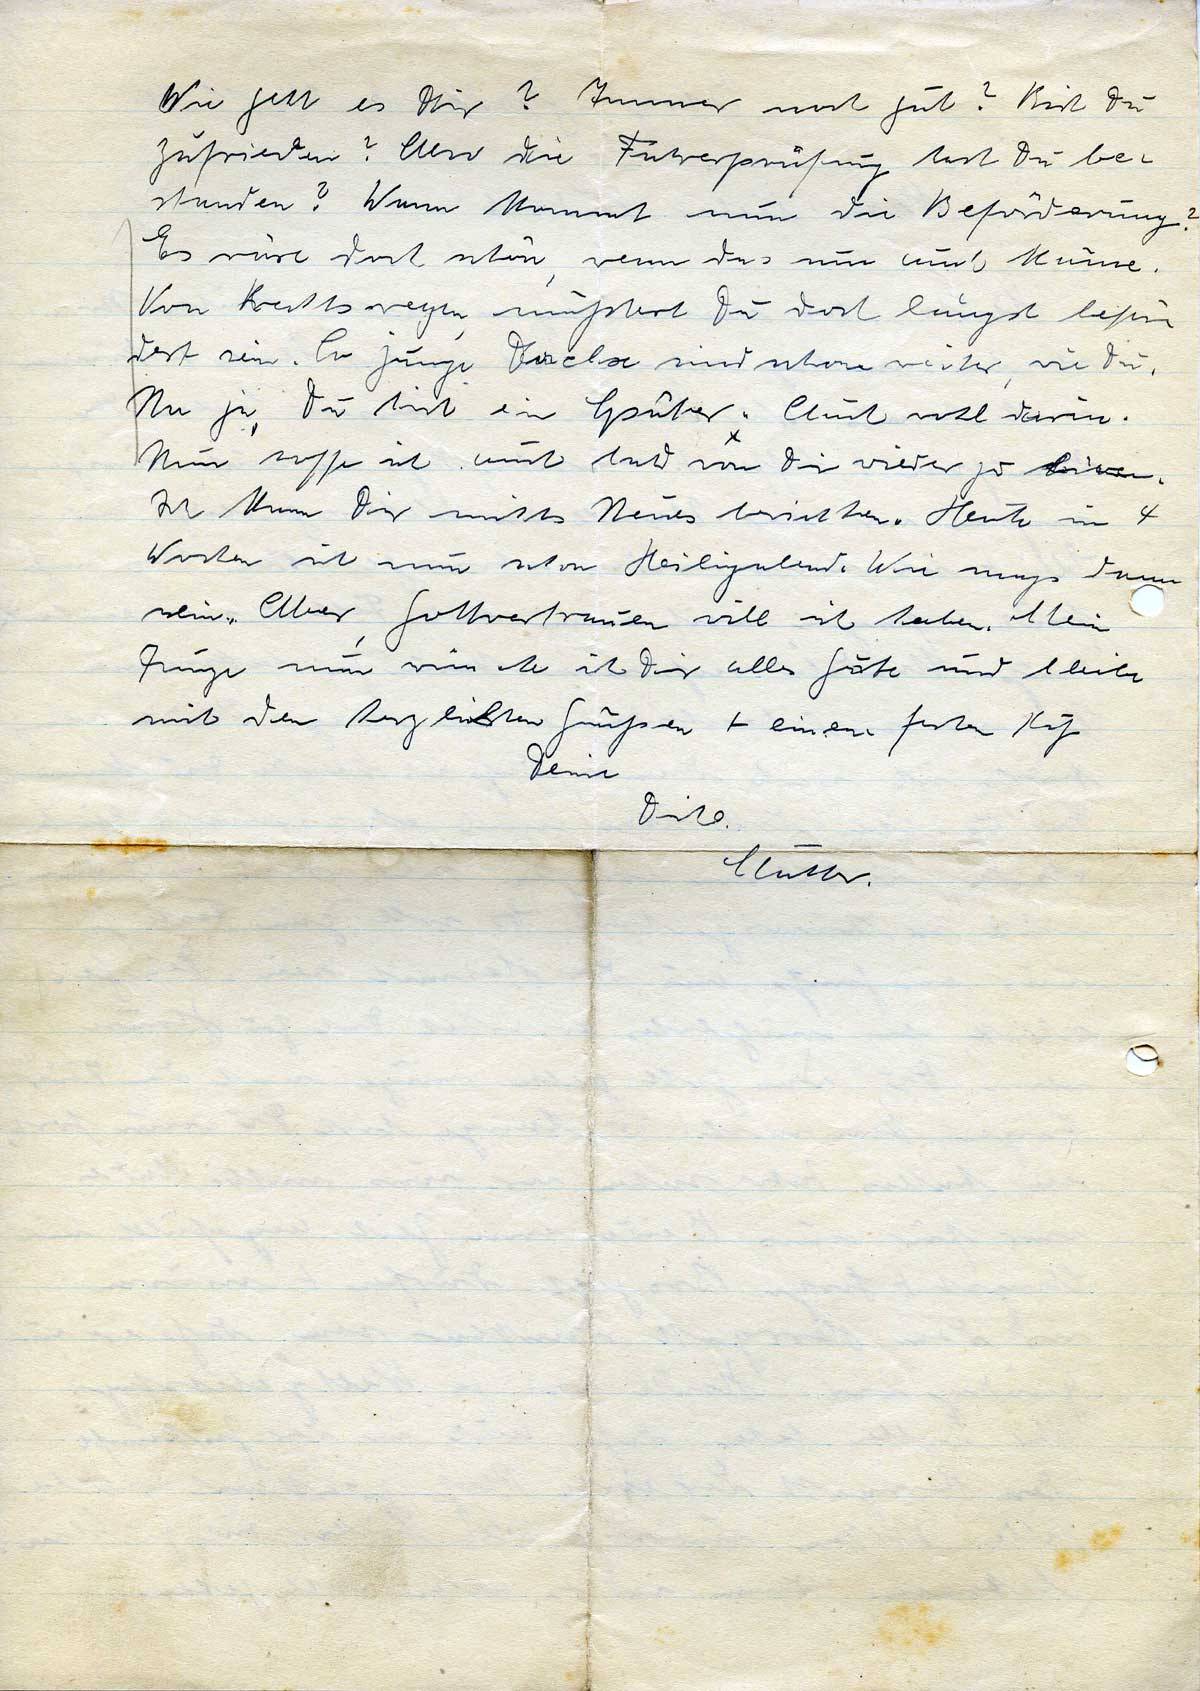 Wie geht es Dir? Immer noch gut? Bist Du
zufrieden? Also die Fahrerprüfung hast Du be-
standen? Wann kommt nun die Beförderung?
Es wäre doch schön, wenn das nun auch käme.
Von Rechtswegen, müsstest Du doch längst beför
dert sein. So junge Dachse sind schon weiter, wie Du.
Na ja, Du bist ein Später. Auch wohl darin.
Nun hoffe ich auch bald von Dir wieder zu
Ich kann Dir nichts Neues berichten. Heute in 4
Wochen ist nun schon Heiligabend. Wie mags dann
sein. Aber, Gottvertrauen will ich haben. Mein
Junge nun wünsche ich Dir alles Gute und bleibe
mit den herzlichsten Grüßen + einem festen Kuß
Deine
Mutter.